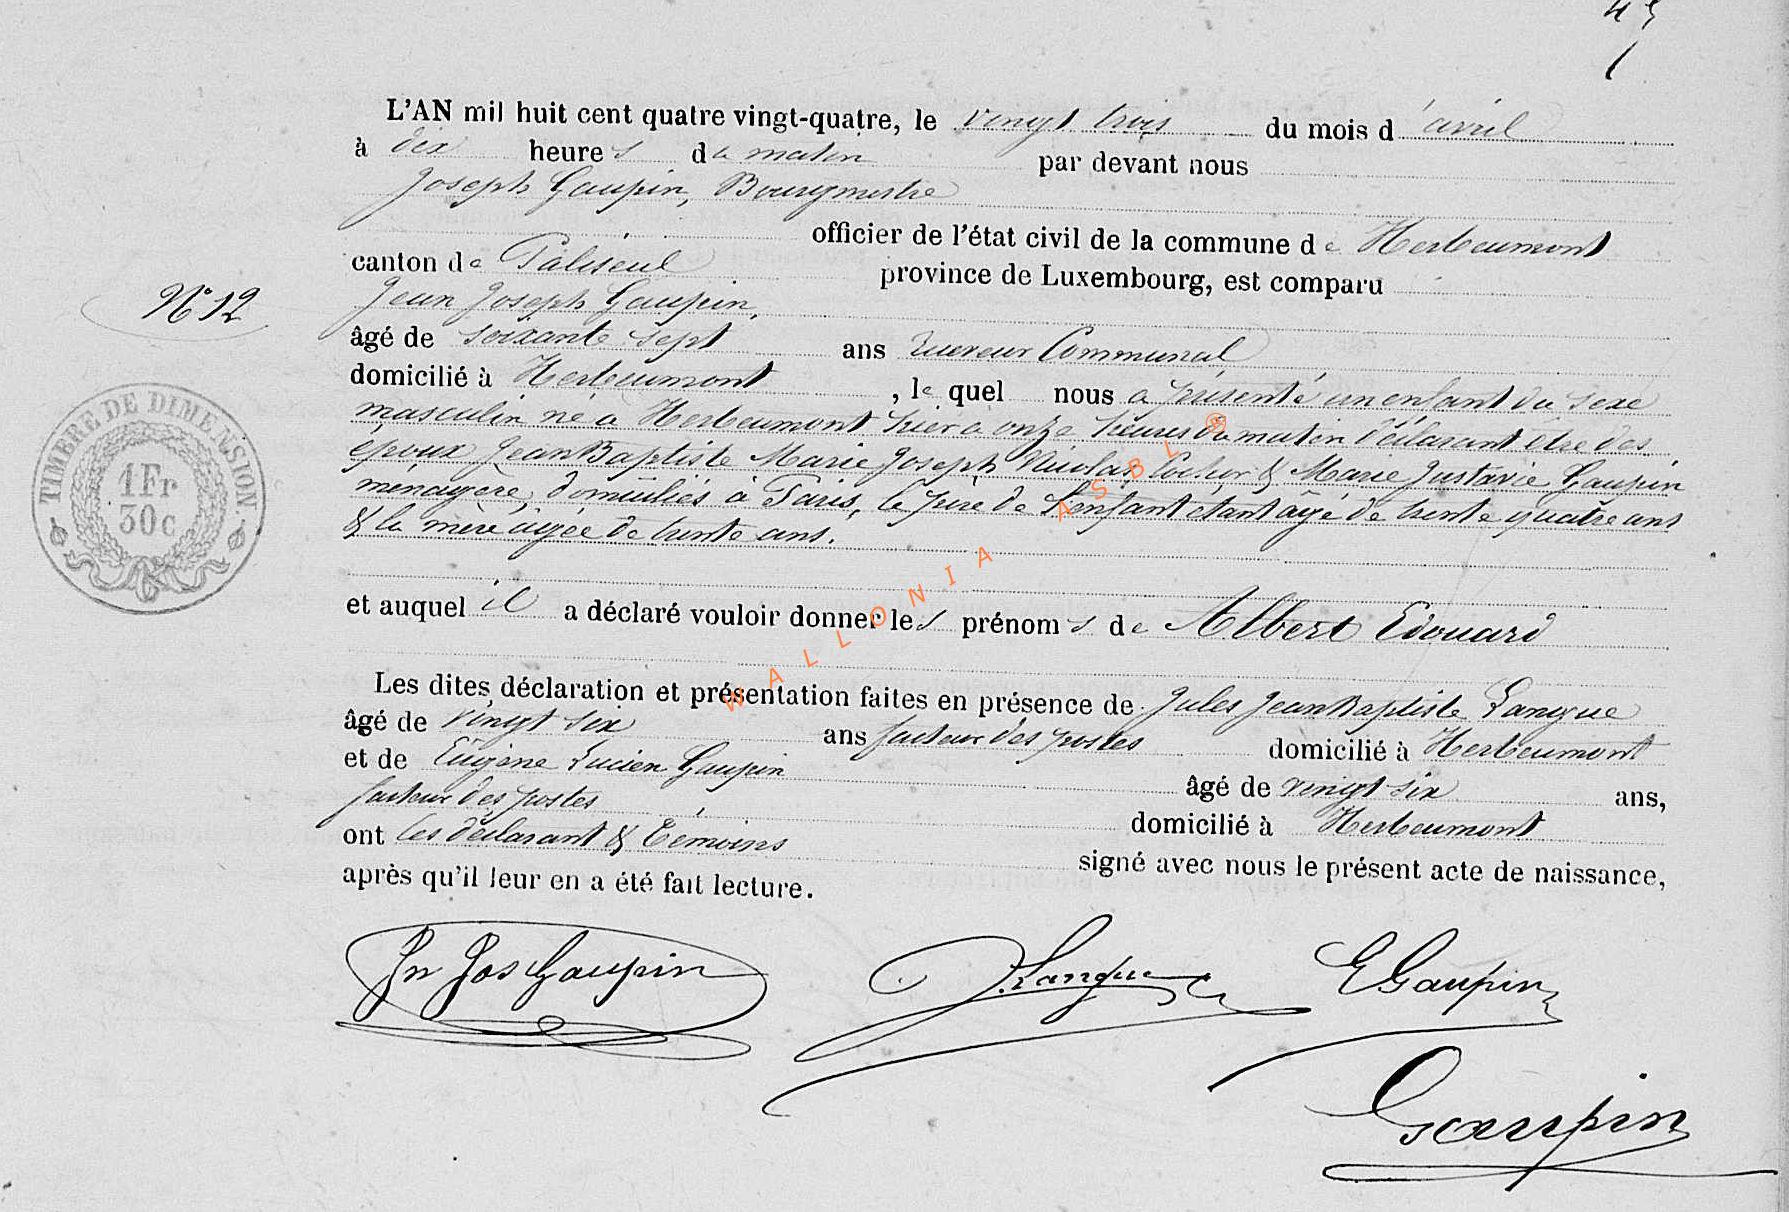 L'AN mil huit cent quatre vingt-quatre, le vingt trois du mois d'avril
à dix heures du matin par devant nous
Joseph Gaupin, Bourgmestre
officier de l'état civil de la commune de Herbeumont
canton de Paliseul province de Luxembourg, est comparu
Jean Joseph Gaupin,
N° 12
âgé de soixante sept ans Communal
domicilié à Herbeumont, le quel nous a présenté un enfant du sexe
masculin né à Herbeumont hier à onze heures du matin déclarant être des
époux Jean Baptiste Marie Joseph Nicolas & Marie Gaupin
ménagère, domiciliés à Paris, le père de l'enfant étant âgé de trente quatre ans
& la mère âgée de trente ans.
TIMBRE DE DIMENSION.
1 Fr
30 c
et auquel il a déclaré vouloir donner les prénoms de Albert Edouard
Les dites déclaration et présentation faites en présence de Jules Jean Baptiste Langue
âgé de vingt six ans facteur des postes domicilié à Herbeumont
et de Eugène Lucien Gaupin âgé de vingt six ans,
facteur des postes domicilié à Herbeumont
ont les déclarant & témoins signé avec nous le présent acte de naissance,
après qu'il leur en a été fait lecture.
Jn Jos Gaupin J. Langue E Gaupin
Gaupin
WALLONIA ASBL ®